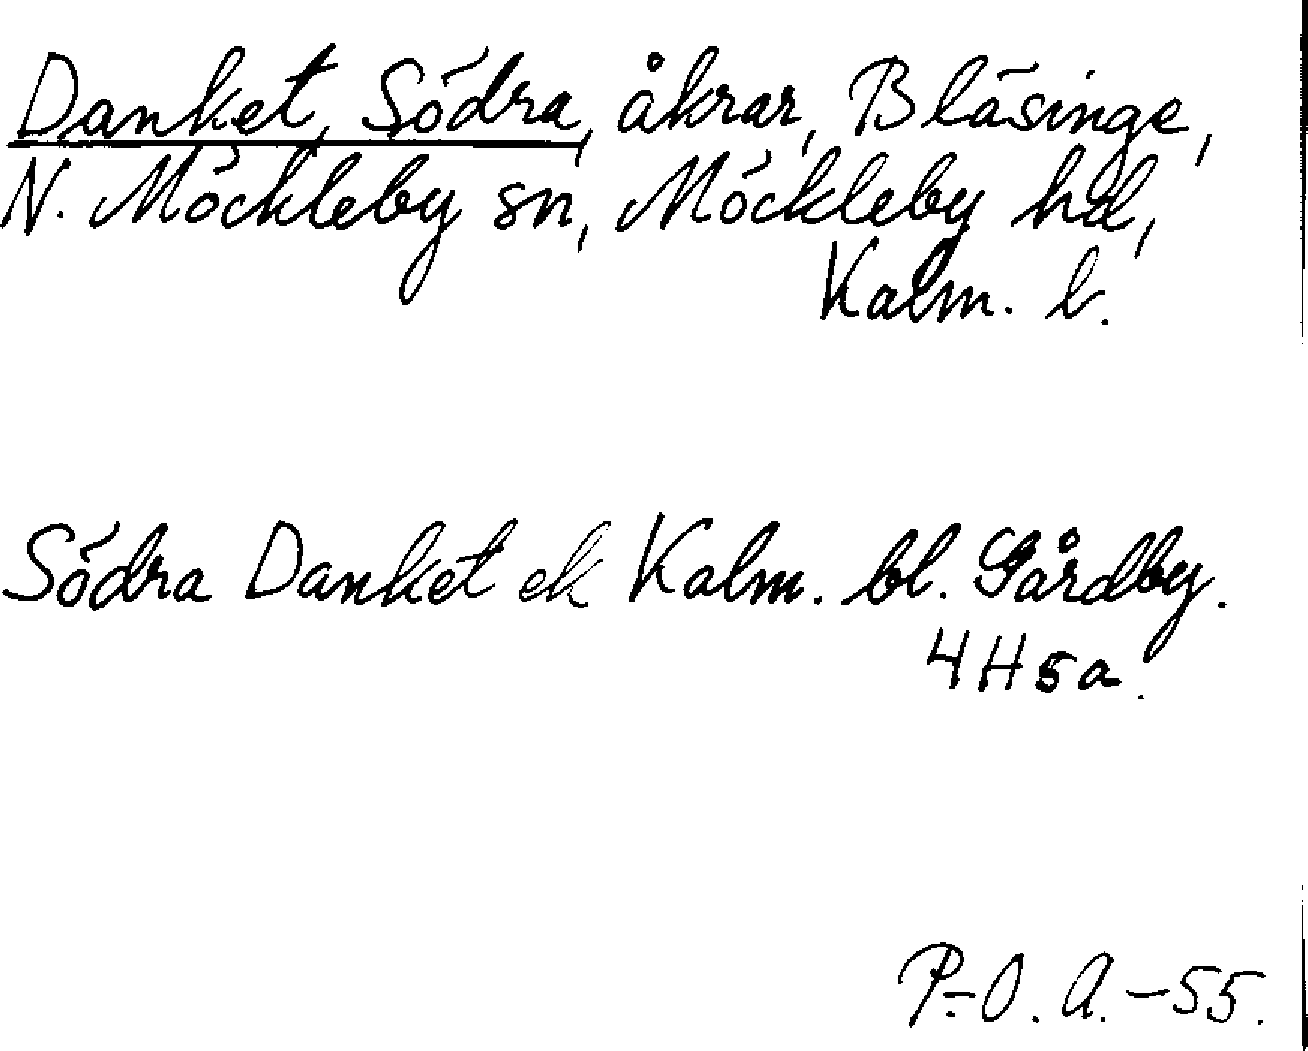 Danket, Södra, åkrar, Bläsinge,
N. Möckleby sn, Möckleby hd,
Kalm. l.
Södra Danket ek Kalm. bl. Gårdby.
4H5a.
P.-O. A. -55.